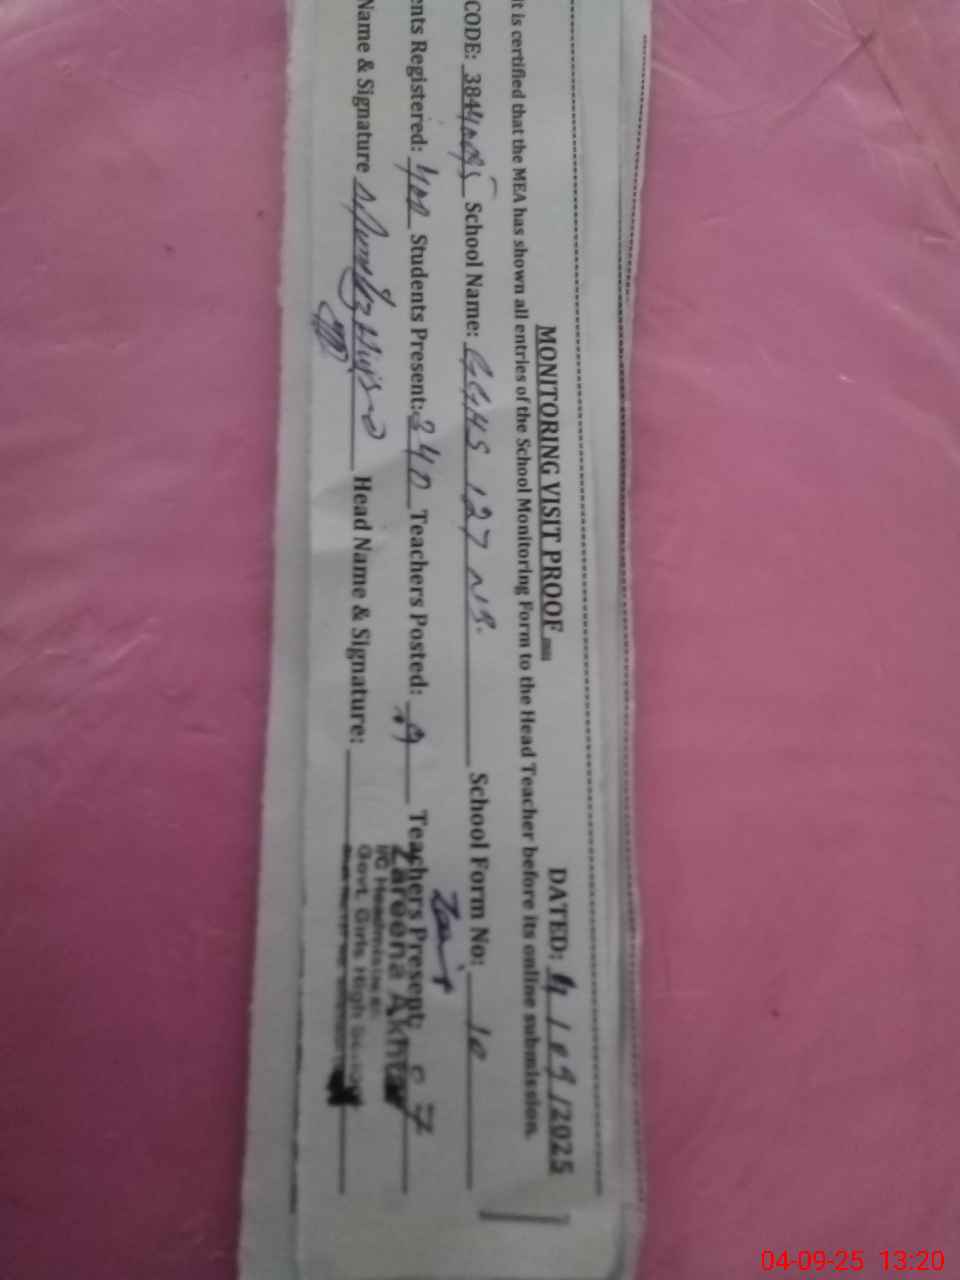 MONITORING VISIT PROOF DATED: 4/09/2025
It is certified that the MEA has shown all entries of the School Monitoring Form to the Head Teacher before its online submission.
CODE: School Name: GGHS 127 NB. School Form No: 10
ents Registered: Students Present: 340 Teachers Posted: 09 Teachers Present: 07
Name & Signature Head Name & Signature:
Zareena Akhtar
I/C Headmistress
Govt. Girls High School
04-09-25 13:20